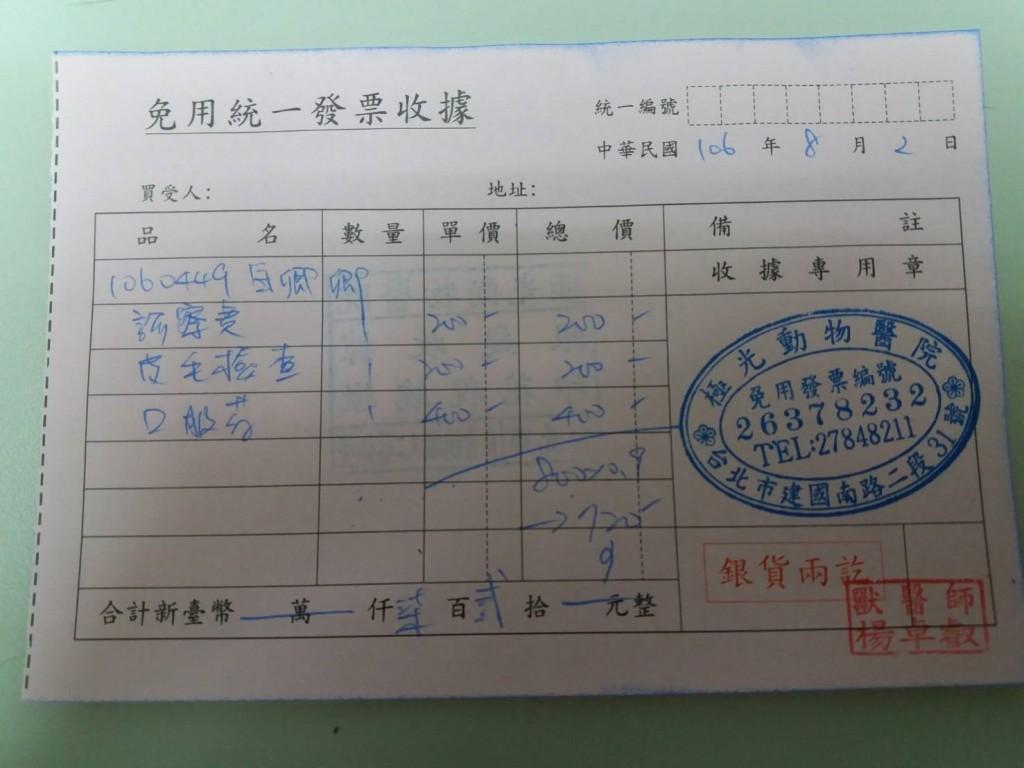 免用統一發票收據
統一編號
中華民國 106 年 8 月 2 日
買受人: 地址:
品名 數量 單價 總價 備註
收據專用章
1060449 白卿卿
診察費 1 200- 200-
皮毛檢查 1 200- 200-
口服藥 1 400- 400-
800×0.9
→720-
極光動物醫院
免用發票編號
26378232
TEL:27848211
台北市建國南路二段31號
銀貨兩訖
獸醫師
楊卓叡
合計新臺幣 — 萬 — 仟 柒 百 貳 拾 — 元整